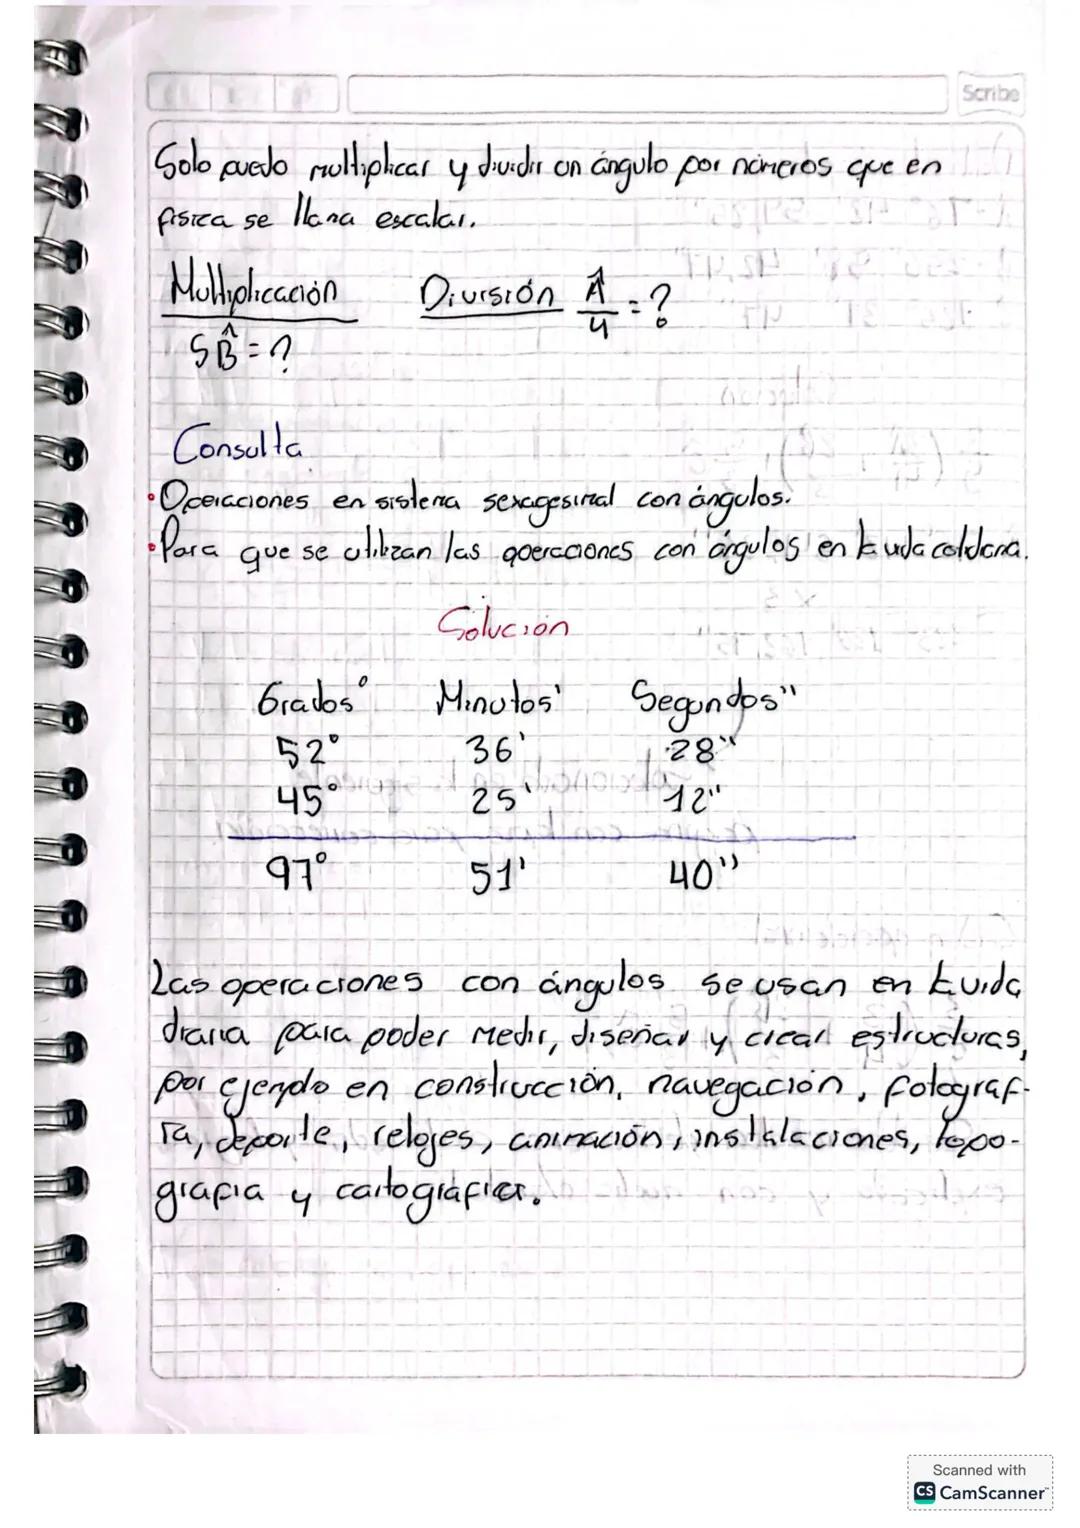 Scribe
Solo puedo multiplicar y dividir un ángulo por números que en
física se llama escalar.
Multiplicación División Â/4 = ?
5B̂ = ?
Consulta
• Operaciones en sistema sexagesimal con ángulos.
• Para que se utilizan las operaciones con ángulos en la vida cotidiana.
Solución
Grados° Minutos' Segundos"
52° 36' 28"
45° 25' 12"
97° 51' 40"
Las operaciones con ángulos se usan en la vida
diaria para poder medir, diseñar y crear estructuras,
por ejemplo en construcción, navegación, fotograf-
ía, deporte, relojes, animación, instalaciones, topo-
grafia y cartografia.
Scanned with
CS CamScanner